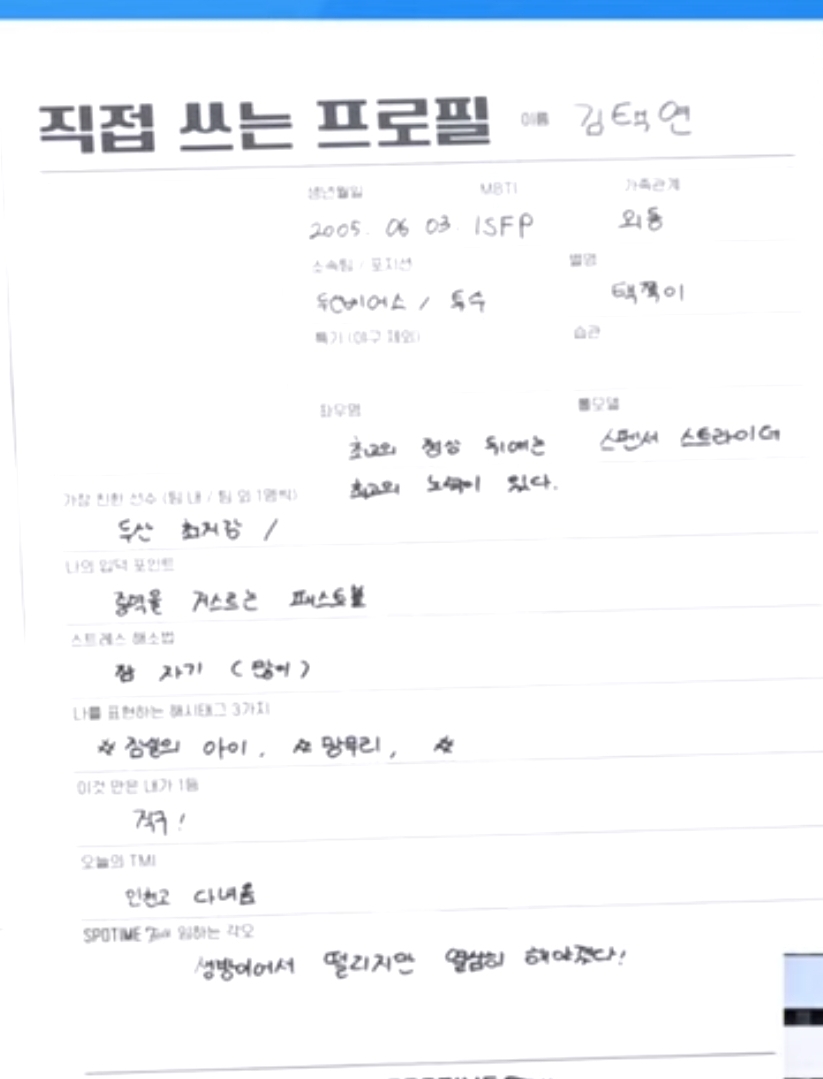 직접 쓰는 프로필 이름 김택연
생년월일 MBTI 가족관계
2005. 06 03. ISFP 외동
소속팀 / 포지션 별명
두산베어스 / 투수 택쪽이
특기 (야구 제외) 습관
좌우명 롤모델
최고의 정상 뒤에는 스펜서 스트라이더
최고의 노력이 있다.
가장 친한 선수 (팀 내 / 팀 외 1명씩)
두산 최지강 /
나의 입덕 포인트
중력을 거스르는 패스트볼
스트레스 해소법
잠 자기 (많이)
나를 표현하는 해시태그 3가지
# 잠실의 아이, # 막무리, #
이것 만은 내가 1등
직구!
오늘의 TMI
인천고 다녀옴
SPOTIME 임하는 각오
생방이어서 떨리지만 열심히 해야겠다!